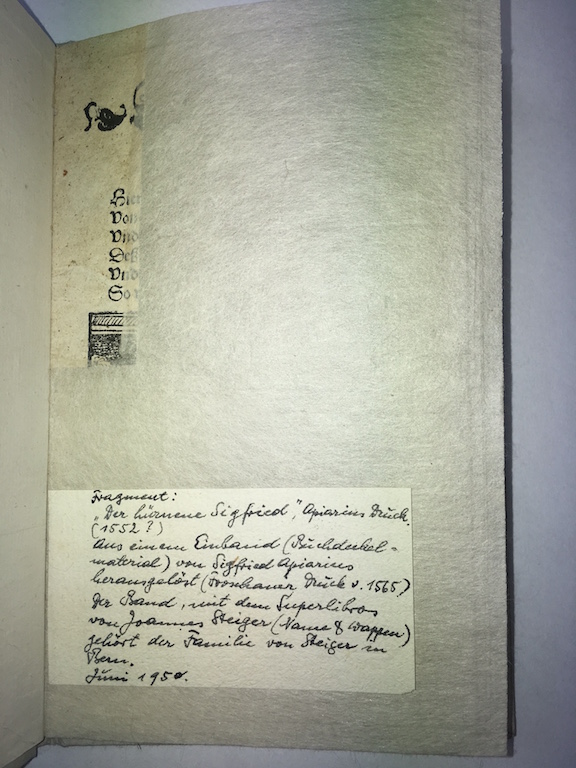 Hie
Von
Vnd
Deß
Vnd
So
Fragment:
„Der hürnene Sigfried", Apiarius Druck.
(1552?)
Aus einem Einband (Buchdeckel-
material) von Sigfried Apiarius
herausgelöst (Froschauer Druck v. 1565)
Der Band, mit dem Superlibros
von Joannes Steiger (Name & Wappen)
gehört der Familie von Steiger in
Bern.
Juni 1950.